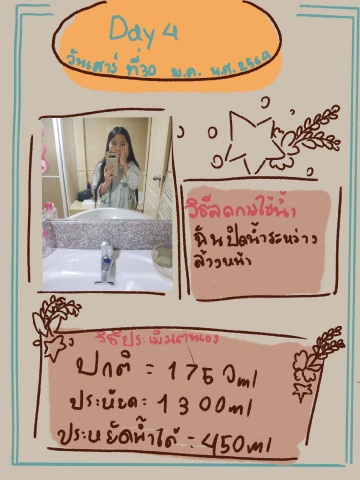 Day 4
วันเสาร์ ที่30 พ.ค. พ.ศ.2564
วิธีลดการใช้น้ำ
ฉันปิดน้ำระหว่าง
ล้างหน้า
วิธีประเมินตนเอง
ปกติ = 1750ml
ประหยัด= 1300ml
ประหยัดน้ำได้ = 450ml